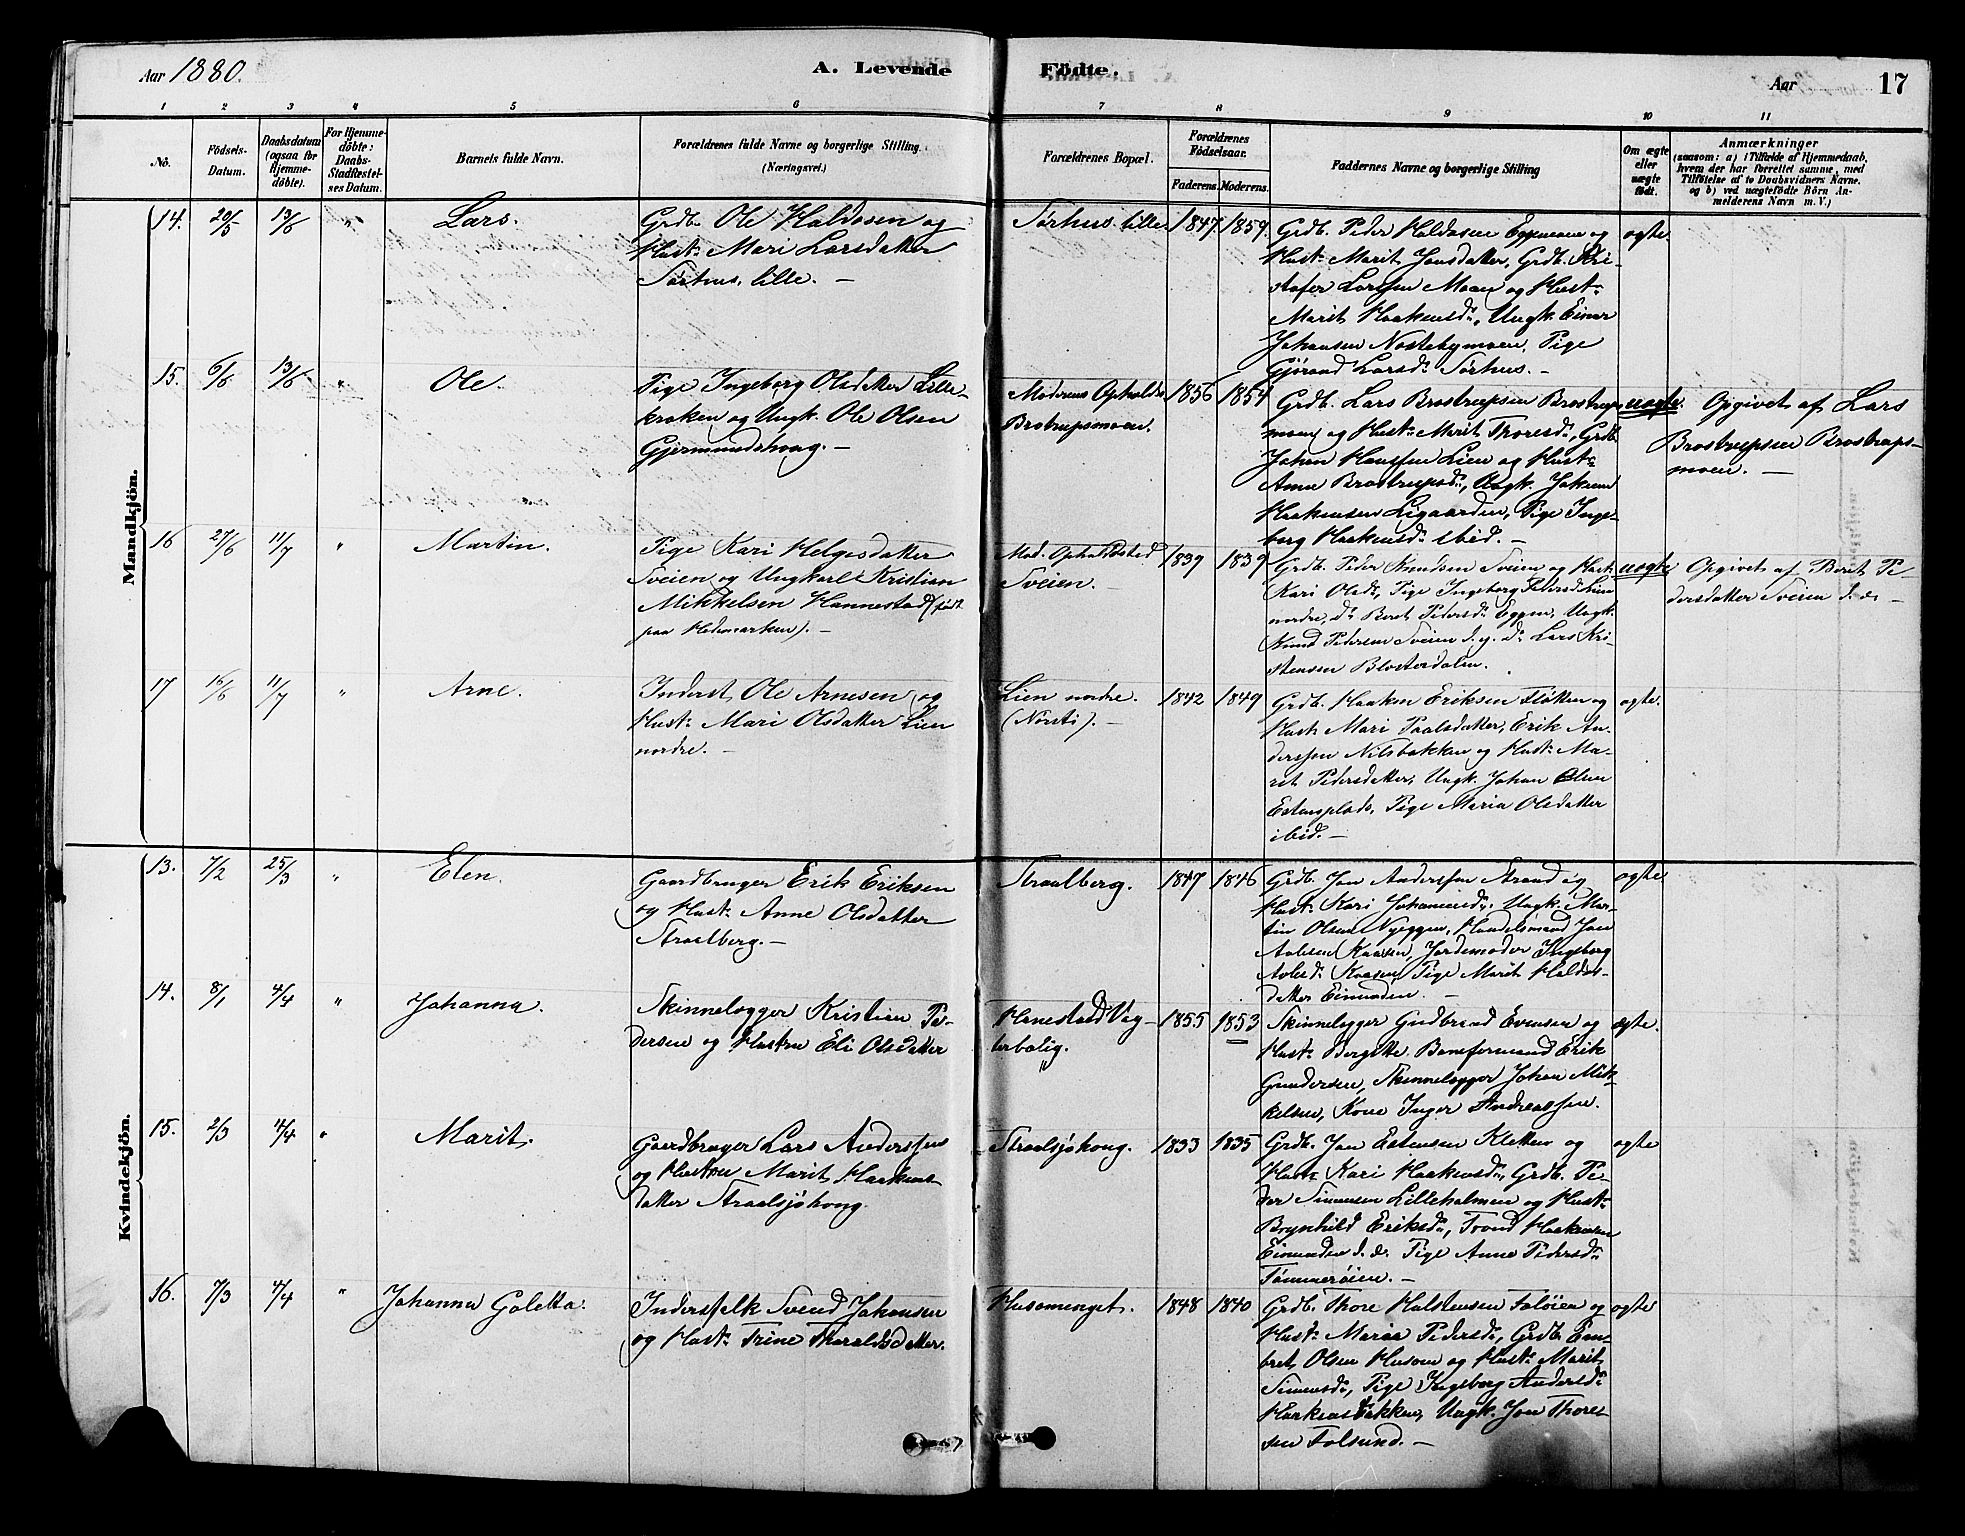 Aar 1880.
A. Levende Födte.
Aar
17
1 2 3 4 5 6 7 8 9 10 11
No.
Födsels-
Datum.
Daabsdatum
(ogsaa for
Hjemme-
döbte).
For Hjemme-
döbte:
Daabs-
Stadfæstel-
ses Datum.
Barnets fulde Navn.
Forældrenes fulde Navne og borgerlige Stilling.
(Næringsvei.)
Forældrenes Bopæl.
Forældrenes
Födselsaar.
Faderens. Moderens.
Faddernes Navne og borgerlige Stilling
Om ægte
eller
uægte
födt.
Anmærkninger
(saasom: a) i Tilfælde af Hjemmedaab,
hvem der har forrettet samme, med
Tilföielse af to Daabsvidners Navne,
og b) ved uægtefödte Börn An-
melderens Navn m. V.)
Mandkjön.
14. 20/5 13/6 " Lars.
Grdb. Ole Haldosen og
Hust: Mari Larsdatter
Sørhus, lille. —
Sørhus lille 1847 1859.
Grdb. Peder Haldosen Eggemoen og
Hust: Marit Jonsdatter, Grdb. Kri-
stofer Larssen Moen og Hust:
Marit Haakensd:, Ungk. Einar
Johansen Nostebymoen, Pige
Gjøraad Larsd: Sørhus. —
ægte.
15. 6/6 13/6 " Ole.
Pige Ingeborg Olsdatter Lille-
kroken og Ungk. Ole Olsen
Gjermundshoug. —
Moderens Opholds
Brotrupsmoen.
1856 1854
Grdb. Lars Brostrupsen Brostrups-
moen og Hust: Marit Thoresd:, Grdb.
Johan Hanssen Lien og Hust:
Anne Brostrupsd:, Ungk. Johan
Haakensen Ligaarden, Pige Inge-
borg Haakensd: ibid. —
uægte.
Opgivet af Lars
Brostrupsen Brostrups-
moen. —
16 27/6 11/7 " Martin.
Pige Kari Helgesdatter
Sveien og Ungkarl Kristian
Mikkelsen Hannestad (født
paa Hedemarken). —
Mod. Opholdssted
Sveien.
1839 1839
Grdb. Peder Knudsen Sveien og Hust:
Kari Olsd:, Pige Ingeborg Pedersd: Lien
nordre, d: Beret Pedersd: Eggen, Ungk.
Knud Pedersen Sveien d. y. d: Lars Kri-
stensen Blosterdalen.
uægte
Opgivet af Beret Pe-
dersdatter Sveien d. æ —
17 16/6 11/7 " Arne.
Inderst Ole Arnesen og
Hust: Mari Olsdatter Lien
nordre. —
Lien nordre.
(Norsti). —
1842 1849
Grdb. Haaken Eriksen Fløtten og
Hust: Mari Paalsdatter, Erik An-
derssen Nilsbakken og Hust: Ma-
rit Pedersdatter, Ungk. Johan Olsen
Estensplads, Pige Maria Olsdatter
ibid. —
ægte.
Kvindekjön.
13. 7/2 25/3 " Elen.
Gaardbruger Erik Eriksen
og Hust: Anne Olsdatter
Straalberg. —
Straalberg. 1847 1846
Grdb. Jon Anderssen Strand og
Hust: Kari Johannesd:. Ungk. Mar-
tin Olsen Nyeggen, Handelsmand Jon
Aolesen Kaasen, Jordemoder Ingeborg
Aolesd: Kaasen, Pige Marit Haldos-
datter Eimunden. —
ægte
14. 8/1 4/4 " Johanna.
Skinnelægger Kristian Pe-
dersen og Hustru Eli Olsdatter
Hanestad Vog-
terbolig.
1855 1853
Skinnelægger Gudbrand Evensen og
Hust: Bergitte. Baneformand Erik
Gundersen, Skinnelægger Johan Mik-
kelsen, Kone Inger Andreassen.
ægte.
15. 2/3 4/4 " Marit.
Gaardbruger Lars Anderssen
og Hustru Marit Haakens-
datter Straalsjøhoug.
Straalsjøhoug. 1833 1835
Grdb. Jon Estensen Kletten og
Hust: Kari Haakensd:, Grdb. Pe-
der Simensen Lilleholmen og Hust:
Brynhild Eriksd:, Trond Haakensen
Eimunden d. æ. Pige Anne Pedersd:
Tømmerøien. —
ægte
16. 7/3 4/4 " Johanna Goletta.
Inderstfolk Svend Johansen
og Hust: Trine Tharaldsdatter.
Husomenget. 1848 1840
Grdb. Thore Halstensen Faløien og
Hust: Maria Pedersd:, Grdb. Em-
bret Olsen Husom og Hust: Marit
Simensd:, Pige Ingeborg Andersd:
Haakensbakken, Ungk. Jon Thore-
sen Folsund. —
ægte